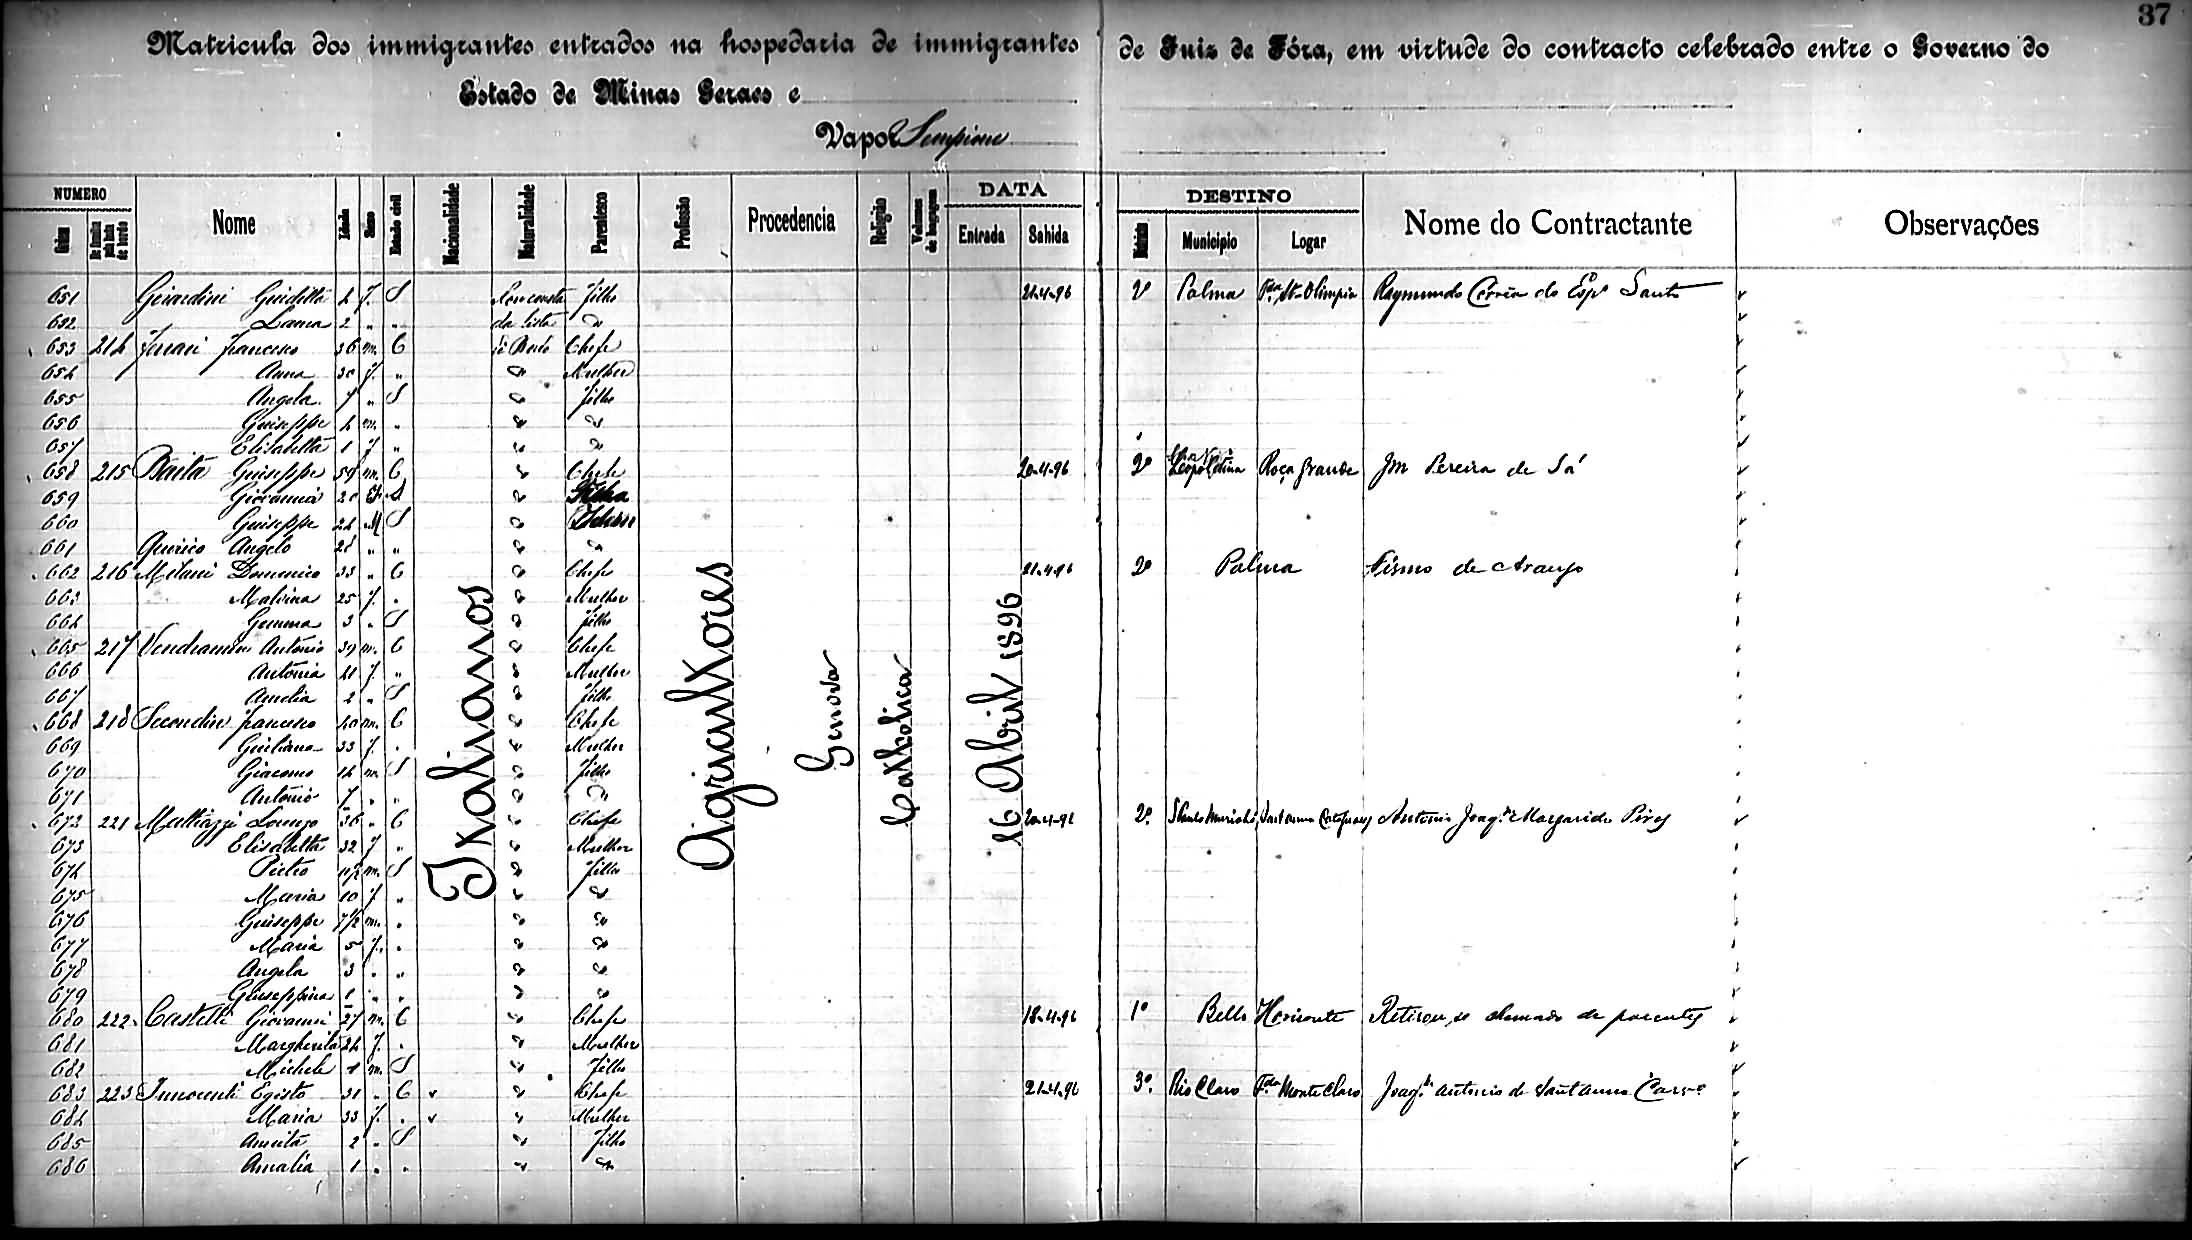 37
Matricula dos immigrantes entrados na hospedaria de immigrantes de Juiz de Fóra, em virtude do contracto celebrado entre o Governo do
Estado de Minas Geraes e
Vapor Sempione
NUMERO Nome Idade Sexo Estado civil Nacionalidade Naturalidade Parentesco Profissão Procedencia Religião Volumes de bagagem DATA DESTINO Nome do Contractante Observações
Ordem De familia pela lista de bordo Entrada Sahida Districto Municipio Logar
Italianos
Agricultores
Genova
Catholica
16 Abril 1896
651 Girardini Giuditta 4 f. S Non consta filho 21-4-96 2º Palma Fda. Sta. Olimpia Raymundo Corrêa do Espº Santo
652 Laura 2 " " da lista "
653 214 Ferrari Francesco 36 m. C de Bordo Chefe
654 Anna 30 f. " " Mulher
655 Angela 7 " S " filho
656 Guiseppe 4 m. " " "
657 Elisabetta 1 f " " "
658 215 Baita Guiseppe 59 m. C " Chefe 20-4-96 2º Leopoldina Roça Grande Jm Pereira de Sá
659 Giovanna 20 S " Filha
660 Guiseppe 24 M S "
661 Quirico Angelo 28 " " " "
662 216 Milani Domenico 33 " C " Chefe 21-4-96 2º Palma Firmo de Araujo
663 Malvina 25 f. . " Mulher
664 Gemma 3 . S " filho
665 217 Vendramin Antonio 39 m. C " Chefe
666 Antonia 41 f. " " Mulher
667 Amelia 2 " S " filho
668 218 Secondin Francesco 40 m. C " Chefe
669 Giuliana 33 f. . " Mulher
670 Giacomo 14 m. S " filho
671 Antonio 7 . " " "
672 221 Muttazzi Lorenzo 36 " C " Chefe 20-4-96 2º. Antonio Joaqm. Margarido Pires
673 Elisabetta 32 f " " Mulher
674 Pietro 11 1/2 m. S " filho
675 Maria 10 f " " "
676 Guiseppe 7 1/2 m. . " "
677 Maria 5 f. . " "
678 Angela 3 . " " "
679 Giuseppina 1 . . " "
680 222. Castelli Giovanni 27 m. C " Chefe 18-4-96 1º Bello Horisonte Retirou-se chamado de parentes
681 Margherita 24 f. . " Mulher
682 Michele 1 m. S filho
683 223 Innocenti Egisto 31 . C " " Chefe 21-4-96 3º. Rio Claro Fda. Monte Claro Joaqm. Antonio de Santanna Carvº
684 Maria 33 f. . " " Mulher
685 2 . S " filho
686 Amalia 1 . . " "